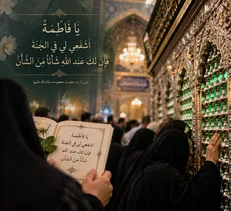 يَا فَاطِمَةُ
اشْفَعِي لِي فِي الْجَنَّةِ
فَإِنَّ لَكِ عِنْدَ اللَّهِ شَأْنًا مِنَ الشَّأْنِ
يَا فَاطِمَةُ
اشْفَعِي لِي فِي الْجَنَّةِ
فَإِنَّ لَكِ عِنْدَ اللَّهِ
شَأْنًا مِنَ الشَّأْنِ